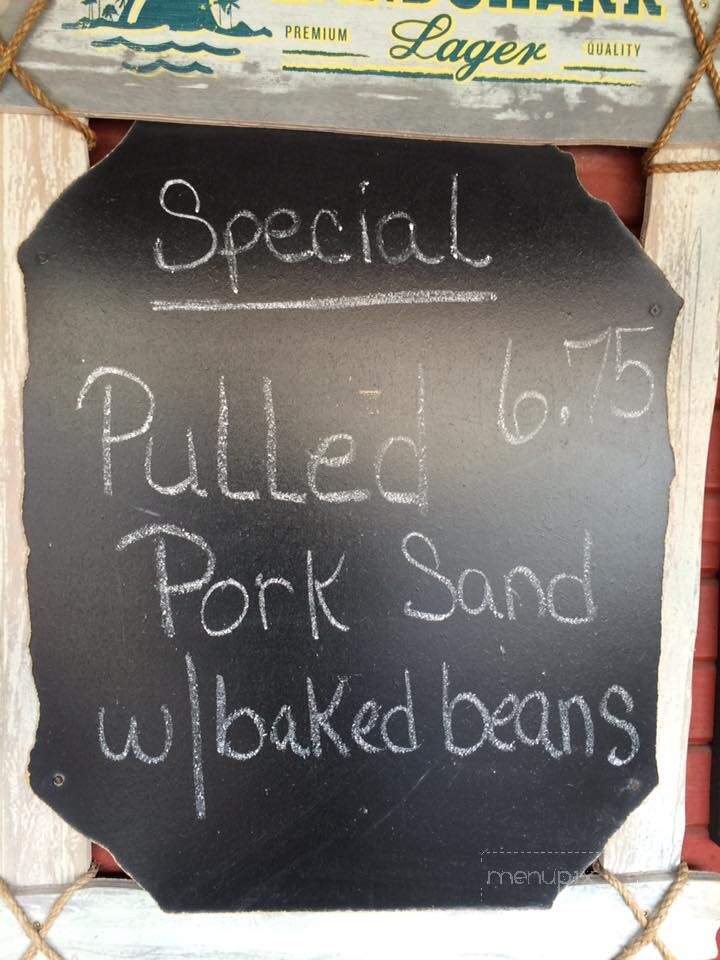 PREMIUM Lager QUALITY
Special
6.75
Pulled
Pork Sand
w/baked beans
menupix